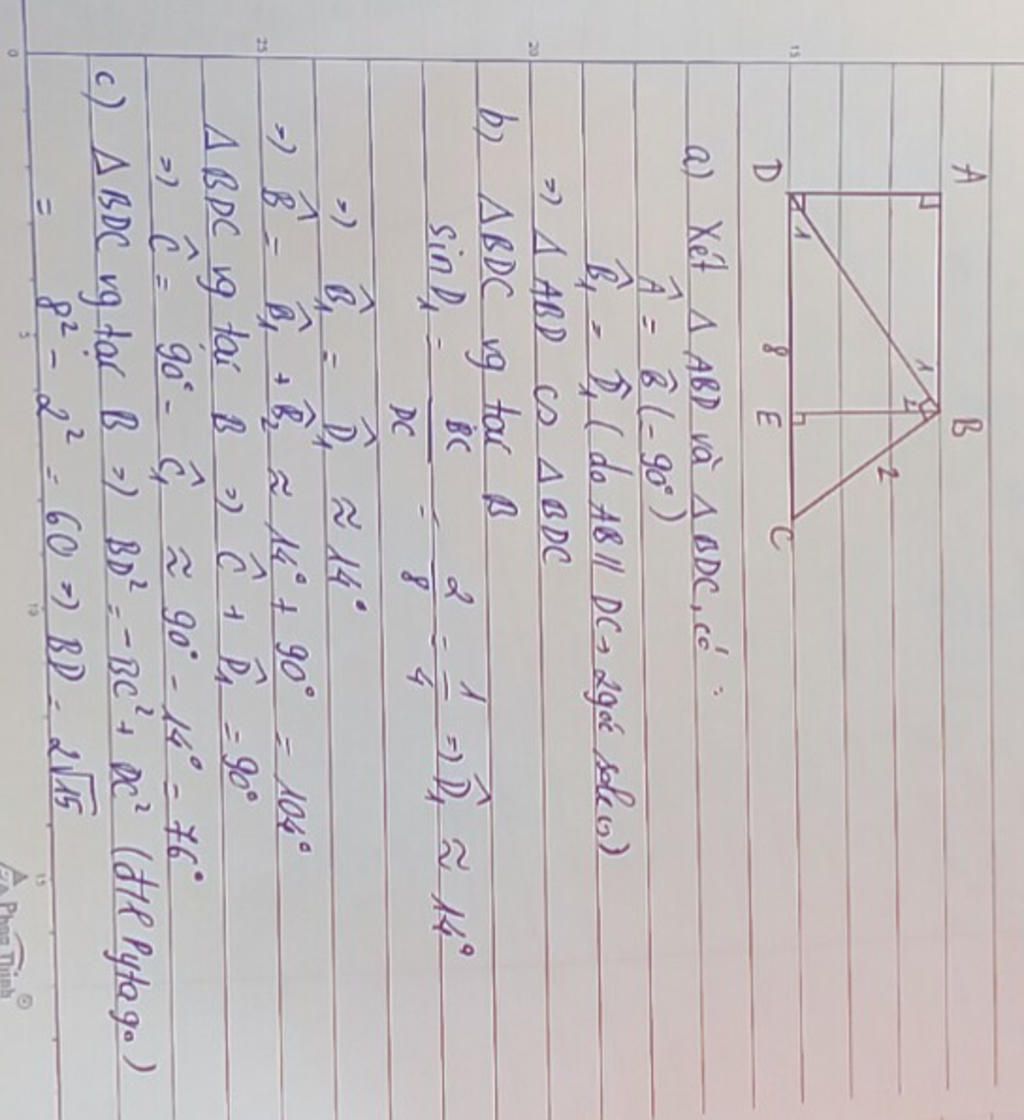 A B
1 2
2
1
D 8 E C
a) Xét Δ ABD và Δ BDC, có :
Â = B̂ (= 90°)
B̂₁ = D̂₁ ( do AB // DC, 2 góc sole
⇒ Δ ABD ∽ Δ BDC
b) Δ BDC vg tại B
sin D₁ = BC/DC = 2/8 = 1/4 ⇒ D̂₁ ≈ 14°
⇒ B̂₁ = D̂₁ ≈ 14°
⇒ B̂ = B̂₁ + B̂₂ ≈ 14° + 90° = 104°
Δ BDC vg tại B ⇒ Ĉ + D̂₁ = 90°
⇒ Ĉ = 90° - Ĉ₁ ≈ 90° - 14° = 76°
c) Δ BDC vg tại B ⇒ BD² = -BC² + DC² (đlí Pytago)
= 8² - 2² = 60 ⇒ BD = 2√15
15
20
25
0 5 10 15
Phong Thinh